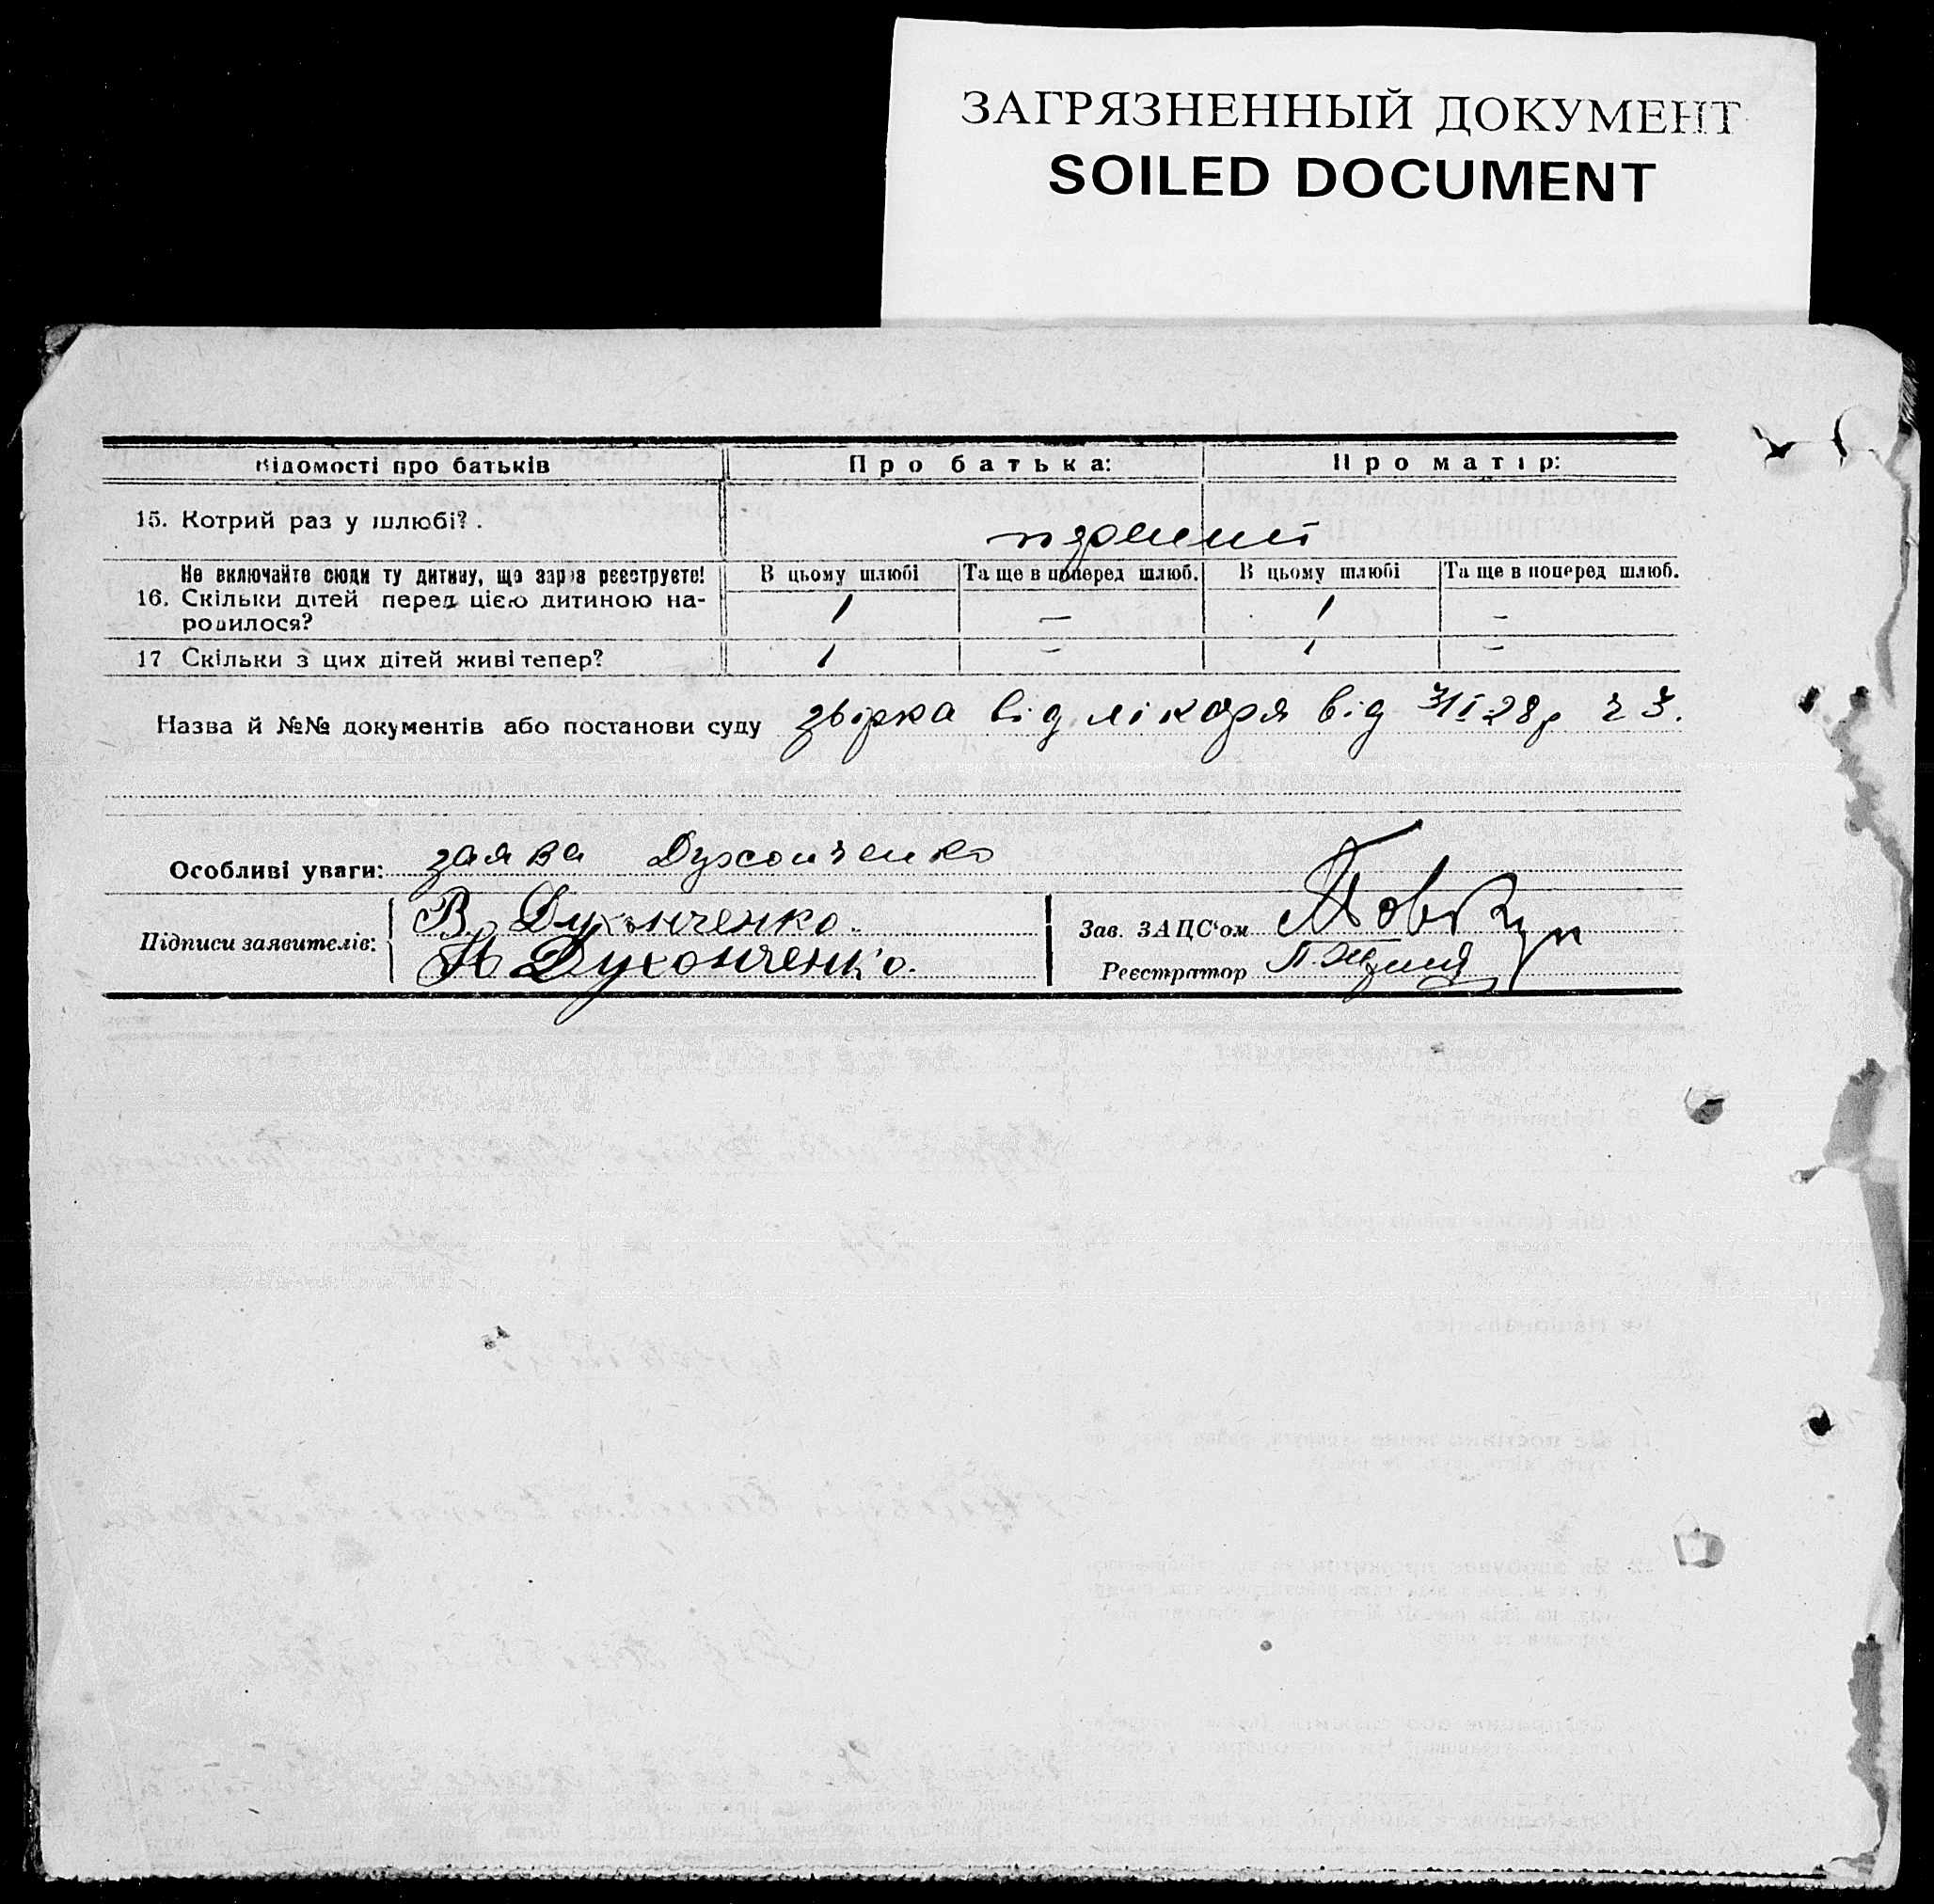 ЗАГРЯЗНЕННЫЙ ДОКУМЕНТ
SOILED DOCUMENT
Відомості про батьків
Про батька:
Про матір:
15. Котрий раз у шлюбі?.
перший
Не включайте сюди ту дитину, що зараз реєструєте!
16. Скільки дітей перед цією дитиною на-
родилося?
В цьому шлюбі
Та ще в поперед шлюб.
В цьому шлюбі
Та ще в поперед шлюб.
1 — 1 —
17 Скільки з цих дітей живі тепер?
1 — 1 —
Назва й №№ документів або постанови суду
від лікаря від 31 I 28 р ч 3.
Особливі уваги: заява Духонченко
Підписи заявителів:
В. Духонченко.
Н Духонченко.
Зав. ЗАЦС'ом
Реєстратор